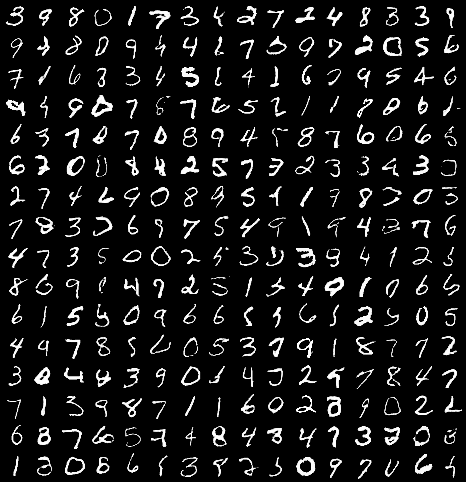 3 9 8 0 1 7 3 2 2 7 2 4 8 3 3 9
9 4 8 0 9 4 4 2 7 5 9 7 2 0 5 6
7 1 6 3 3 4 5 1 4 1 6 7 9 5 4 6
9 4 9 0 7 6 7 6 5 2 1 1 8 0 6 1
6 3 7 0 7 0 8 9 4 5 8 7 6 0 6 5
6 7 0 0 8 4 2 5 7 7 2 3 3 9 3 0
2 7 4 2 9 0 8 9 5 1 1 9 8 3 0 3
7 8 3 2 6 9 7 5 4 9 1 9 4 8 7 6
4 7 3 5 0 0 2 5 3 0 3 9 4 1 2 5
8 6 9 1 4 7 2 5 1 5 4 0 1 0 6 6
6 1 5 5 0 9 6 6 5 5 6 5 2 9 0 5
4 9 7 8 5 0 0 5 3 7 9 1 8 7 7 2
3 0 4 4 3 9 0 1 4 7 2 5 7 8 4 7
7 1 3 9 8 7 1 1 6 0 2 8 9 0 2 2
6 8 7 6 5 7 4 8 4 8 4 7 3 2 0 8
1 3 0 8 6 5 3 9 2 5 0 9 7 0 6 4